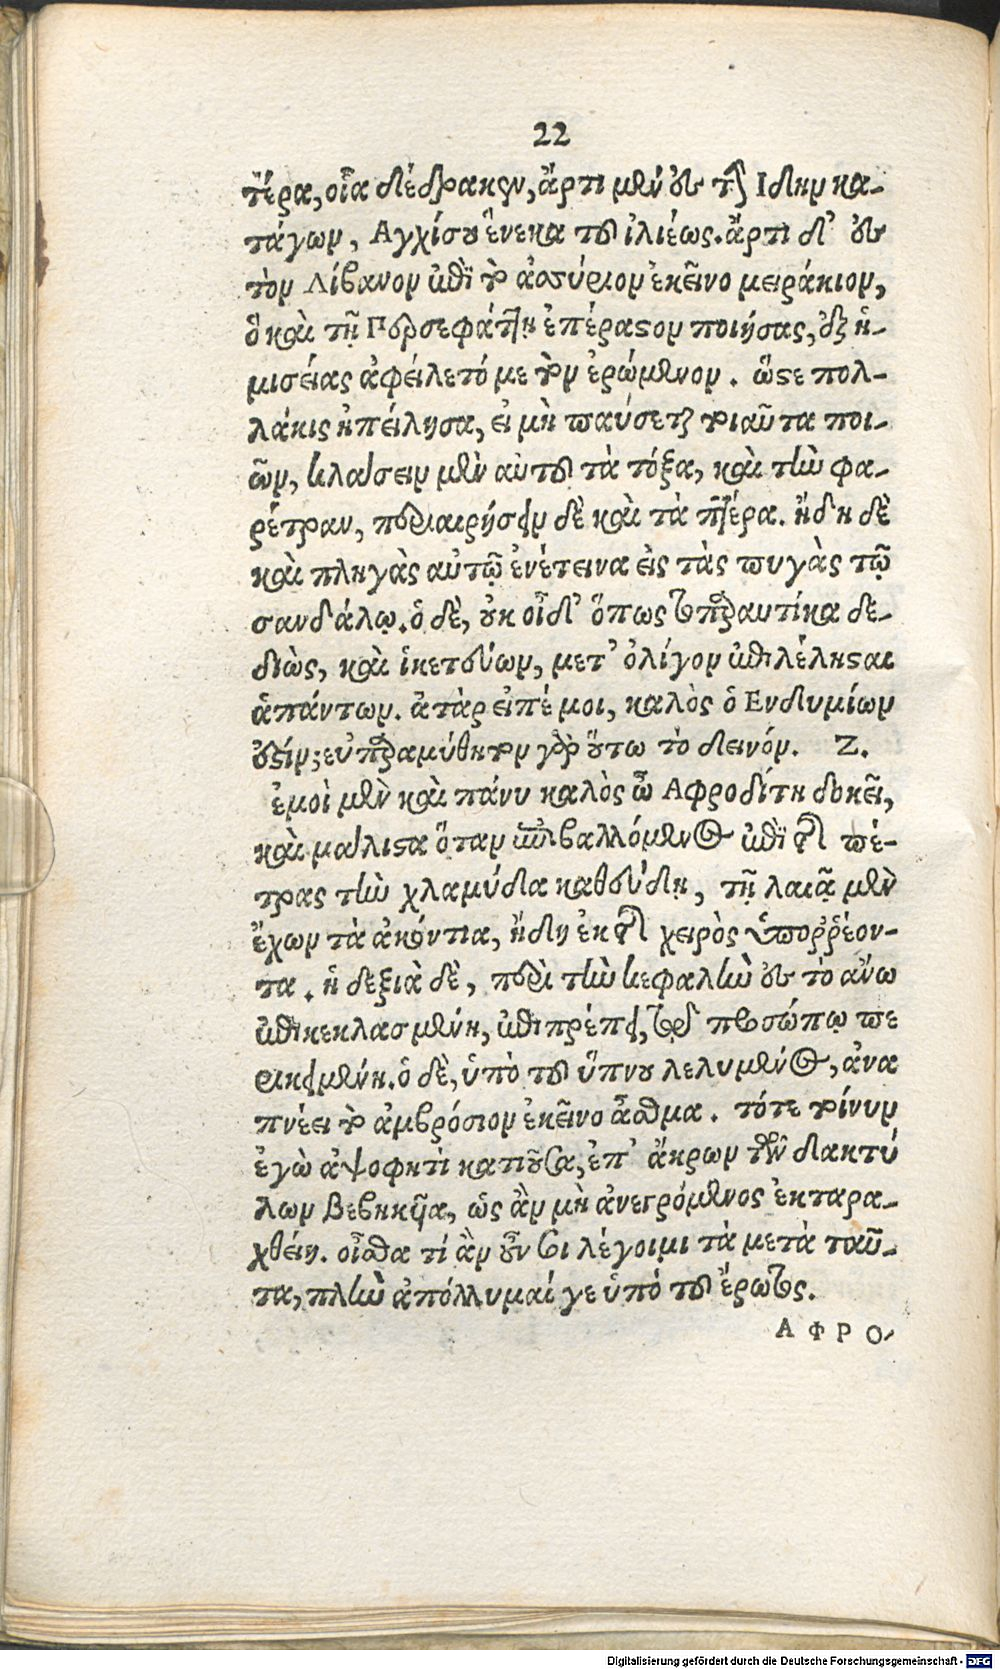 22
τέρα, οἷα δέδρακεν, ἄρτι μὲν εἰς τὴν Ιδην κα-
τάγων, Αγχίσου ἕνεκα τοῦ ἰλιέως. ἄρτι δ' εἰς
τὸν Λίβανον ἐπὶ τὸ ἀσσύριον ἐκεῖνο μειράκιον,
ὃ καὶ τῇ Περσεφάττῃ ἐπέραστον ποιήσας, ἐξ ἡ-
μισείας ἀφείλετό με τὸν ἐρώμενον. ὥστε πολ-
λάκις ἠπείλησα, εἰ μὴ παύσεται τοιαῦτα ποι-
ῶν, κλάσειν μὲν αὐτοῦ τὰ τόξα, καὶ τὴν φα-
ρέτραν, περιαιρήσειν δὲ καὶ τὰ πτερά. ἤδη δὲ
καὶ πληγὰς αὐτῷ ἐνέτεινα εἰς τὰς πυγὰς τῷ
σανδάλῳ. ὁ δὲ, οὐκ οἶδ' ὅπως τὸ παραυτίκα δε-
διὼς, καὶ ἱκετεύων, μετ' ὀλίγον ἐπιλέλησται
ἁπάντων. ἀτὰρ εἰπέ μοι, καλὸς ὁ Ενδυμίων
ἐστίν; εὐπαραμύθητον γὰρ οὕτω τὸ δεινόν. Ζ.
ἐμοὶ μὲν καὶ πάνυ καλὸς ὦ Αφροδίτη δοκεῖ,
καὶ μάλιστα ὅταν ὑποβαλλόμενος ἐπὶ τῆς πέ-
τρας τὴν χλαμύδα καθεύδῃ, τῇ λαιᾷ μὲν
ἔχων τὰ ἀκόντια, ἤδη ἐκ τῆς χειρὸς ὑποῤῥέον-
τα. ἡ δεξιὰ δὲ, περὶ τὴν κεφαλὴν εἰς τὸ ἄνω
ἐπικεκλασμένη, ἐπιπρέπει, τῷ προσώπῳ πε
ρικειμένη. ὁ δὲ, ὑπὸ τοῦ ὕπνου λελυμένος, ἀνα
πνέει τὸ ἀμβρόσιον ἐκεῖνο ἆσθμα. τότε τοίνυν
ἐγὼ ἀψοφητὶ κατιοῦσα, ἐπ' ἄκρων τῶν δακτύ
λων βεβηκυῖα, ὡς ἂν μὴ ἀνεγρόμενος ἐκταρα-
χθείη. οἶσθα τί ἂν οὖν σοι λέγοιμι τὰ μετὰ ταῦ-
τα, πλὴν ἀπόλλυμαί γε ὑπὸ τοῦ ἔρωτος.
ΑΦΡΟ-
Digitalisierung gefördert durch die Deutsche Forschungsgemeinschaft - DFG